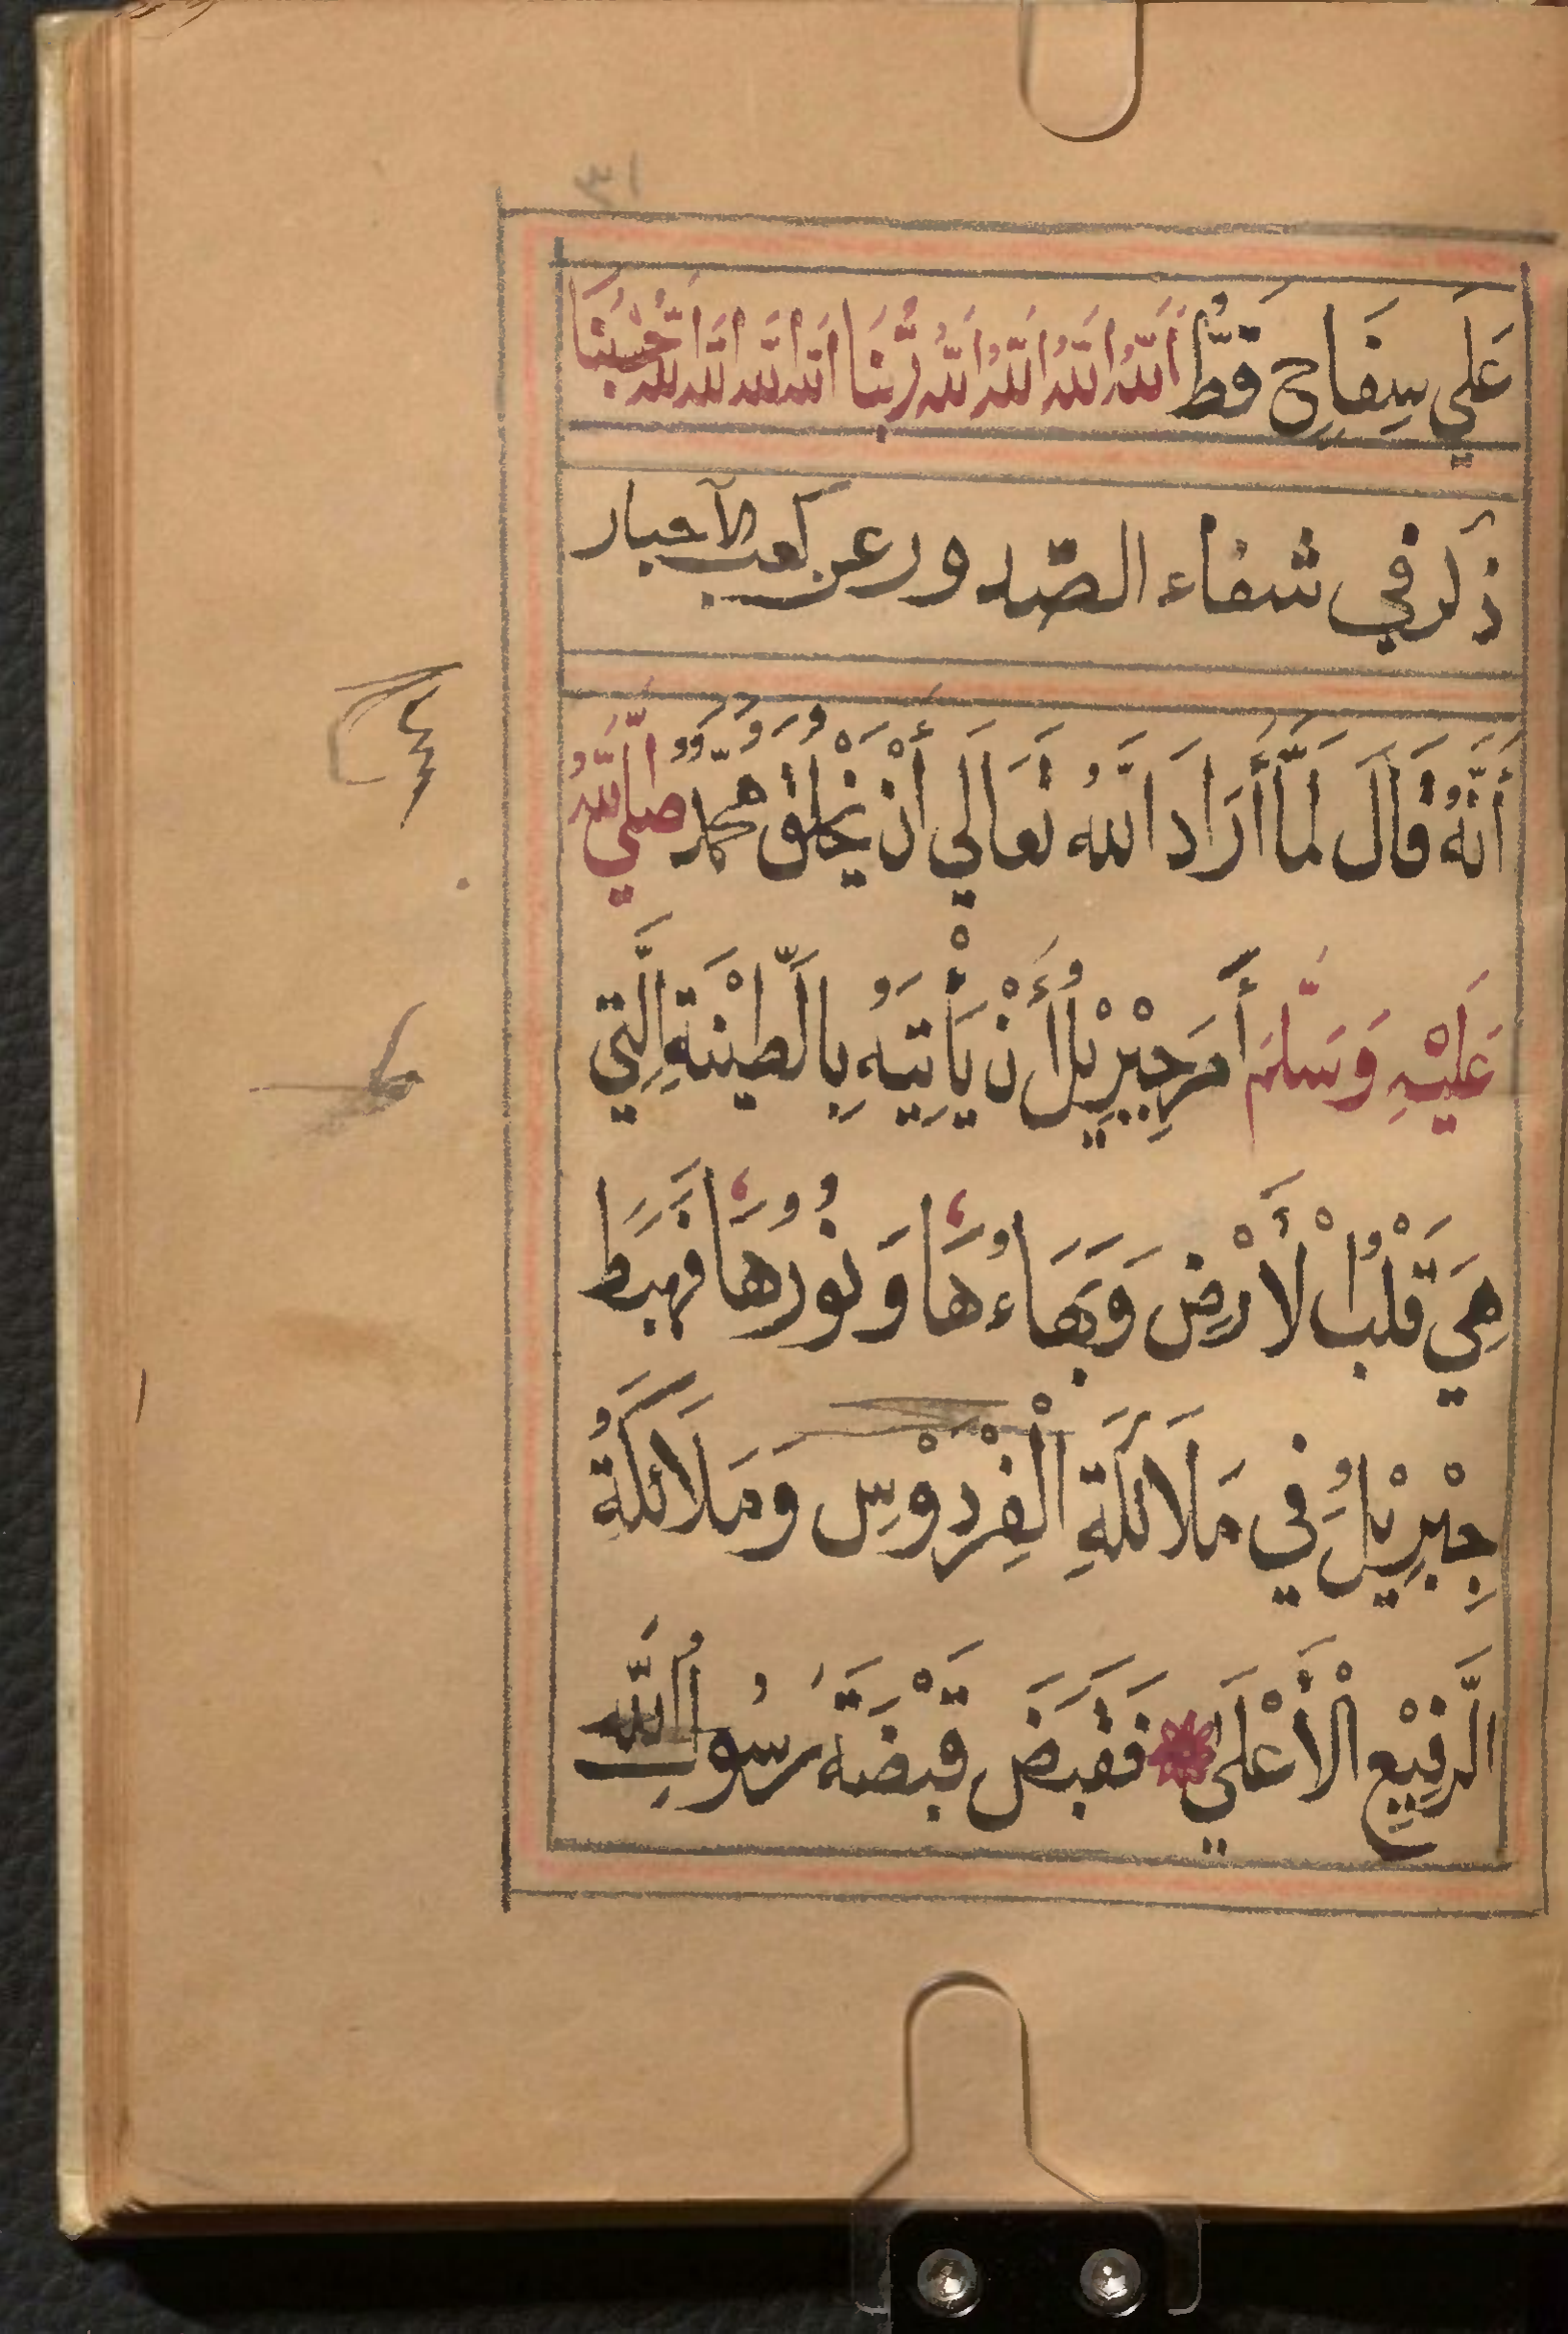 ١٣
عَلَي سِفَاحٍ قَطُّ اَللّٰهُ اَللّٰهُ اَللّٰهُ اَللّٰهُ رَبُّنَا اَللّٰه اَللّٰه اَللّٰه اَللّٰه حَسْبُنَا
ذكر في شفاء الصّدور عن كعب الآحبار
أَنَّهُ قَالَ لَمَّا أَرَادَ اللّٰهُ تَعَالَي أَنْ يَخْلُقَ مُحَمَّدً صَلَّي اللّٰهُ
عَلَيْهِ وَسَلَّمَ أَمَرَ جِبْرِيْلُ أَنْ يَأْتِيَهُ بِالطِّيْنَةِ الَّتِي
هِيَ قَلْبُ اْلأَرْضِ وَبَهَاءُهَا وَنُوْرُهَا فَهَبَطَ
جِبْرِيْلُ فِي مَلَائكَةِ الْفِرْدَوْسِ وَمَلَائكَةُ
الرَّفِيْعِ الْأَعْلَي فَقَبَضَ قَبْضَةَ رَسُوْلِ اللّٰه